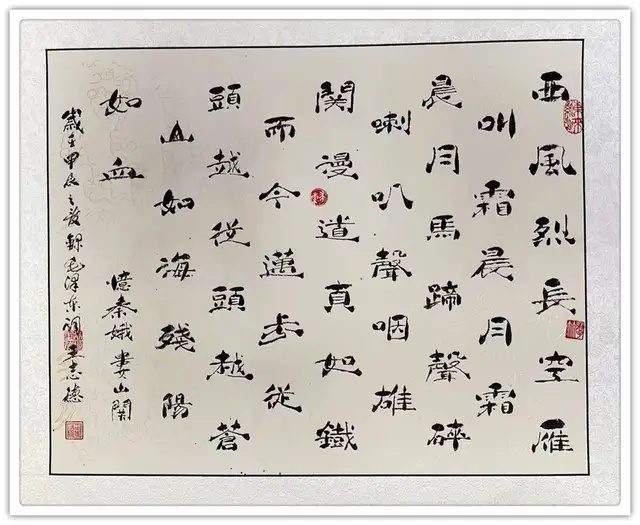 西風烈長空雁
叫霜晨月霜
晨月馬蹄聲碎
喇叭聲咽雄
関漫道真如鐵
而今邁步從
頭越從頭越蒼
山如海殘陽
如血
憶秦娥婁山関
歲在甲辰之錄毛澤東詞王志德